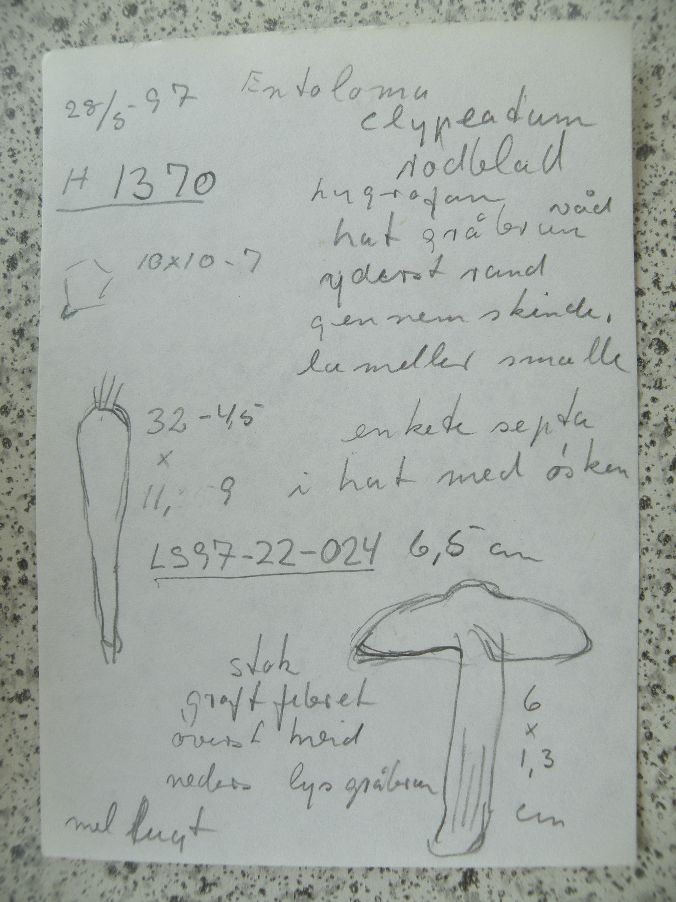 28/5-97 Entoloma
clypeatum
rodblad
H 1370
hygrofan
våd
hat gråbrun
10x10-7
yderst rand
gennemskinde.
lameller smalle
32-45
x
11, 9
enkete septa
i hat med øsken
LS97-22-024 6,5 cm
stok
graft fibret
øverst hvid
neders lys gråbrun
6
x
1,3
cm
mel lugt